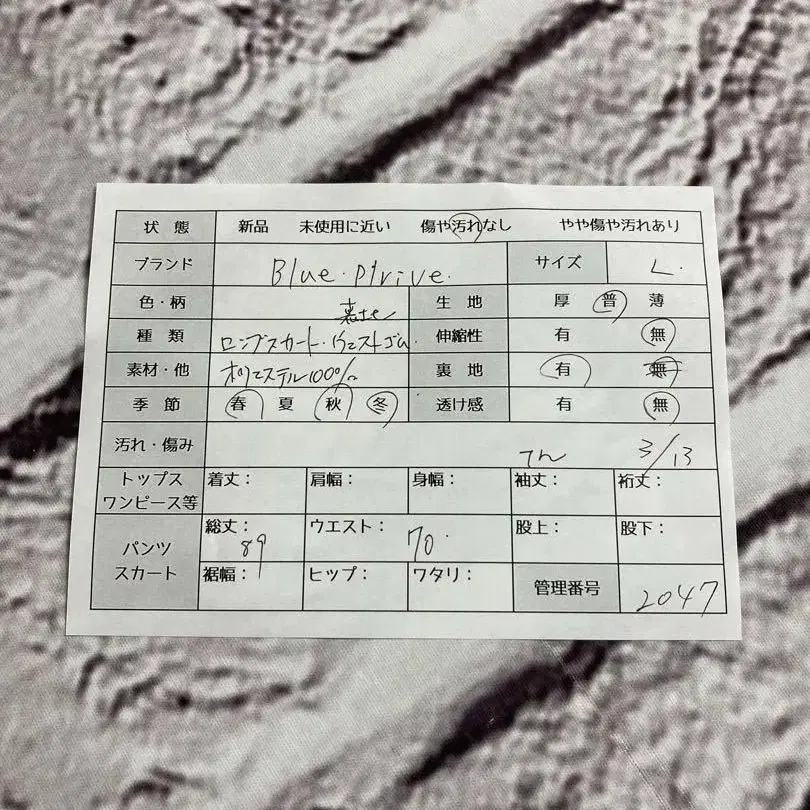 状 態 新品 未使用に近い 傷や汚れなし やや傷や汚れあり
ブランド Blue. Ptrive. サイズ L.
色・柄 生 地 厚 普 薄
種 類 ロングスカート・ウエストゴム. 伸縮性 有 無
素材・他 ポリエステル100% 裏 地 有 無
季 節 春 夏 秋 冬 透け感 有 無
汚れ・傷み てん 3/13
トップス
ワンピース等 着丈: 肩幅: 身幅: 袖丈: 裄丈:
パンツ
スカート 総丈: 89 ウエスト: 70. 股上: 股下:
裾幅: ヒップ: ワタリ: 管理番号 2047